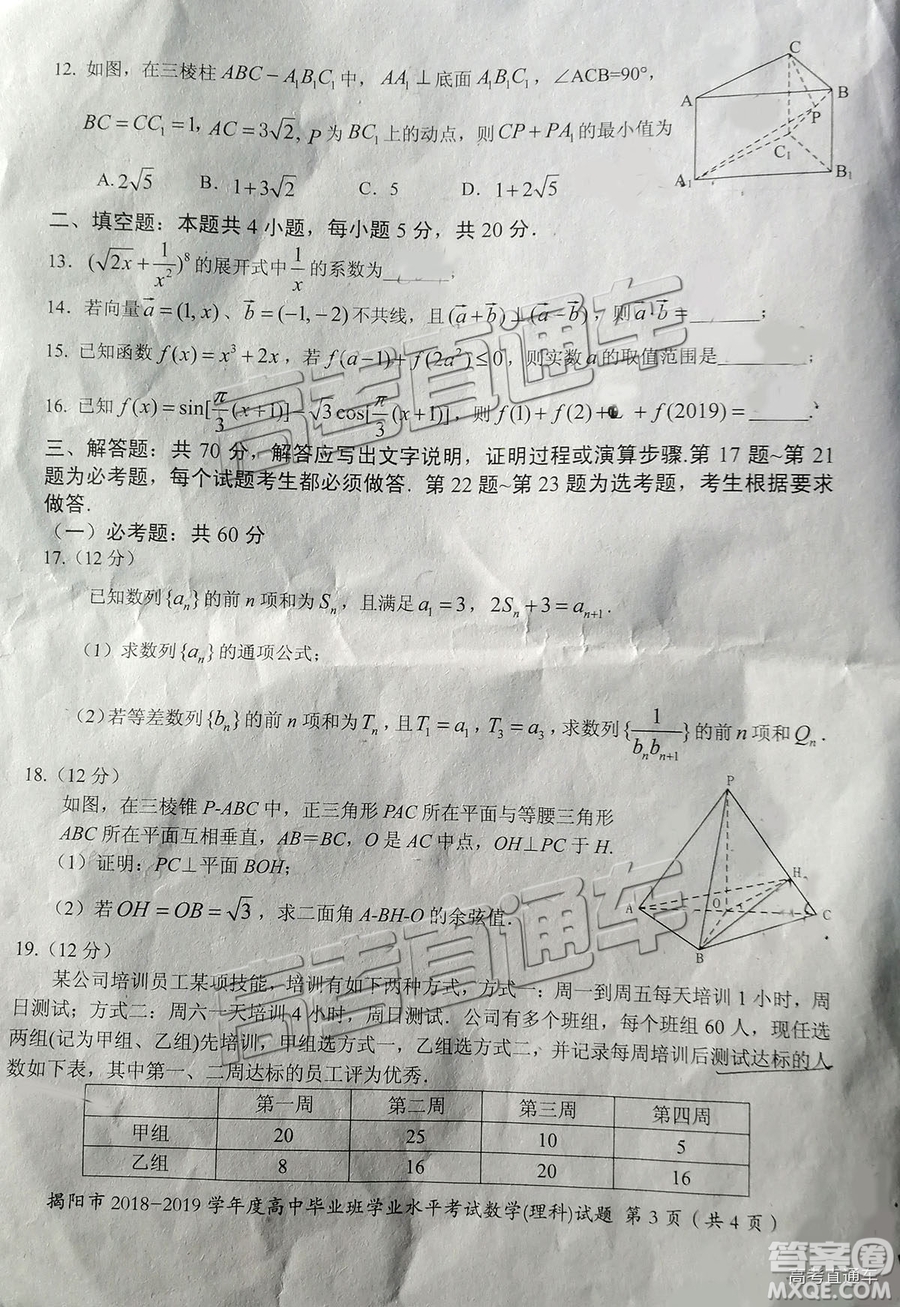 12. 如图，在三棱柱 ABC－A₁B₁C₁ 中，AA₁⊥底面 A₁B₁C₁，∠ACB=90°，
BC＝CC₁＝1，AC＝3√2，P 为 BC₁ 上的动点，则 CP＋PA₁ 的最小值为
A.2√5 B. 1+3√2 C. 5 D. 1+2√5
C
A B
P
C₁
A₁ B₁
二、填空题：本题共 4 小题，每小题 5 分，共 20 分．
13. (√2x + 1/x²)⁸ 的展开式中 1/x 的系数为______；
14. 若向量 a⃗ = (1, x)、b⃗ = (−1, −2) 不共线，且 (a⃗+b⃗)⊥(a⃗−b⃗)，则 a⃗·b⃗ = ______；
15. 已知函数 f(x) = x³ + 2x，若 f(a−1) + f(2a²) ≤ 0，则实数 a 的取值范围是______；
16. 已知 f(x) = sin[π/3(x+1)] − √3cos[π/3(x+1)]，则 f(1) + f(2) + + f(2019) = ______．
三、解答题：共 70 分，解答应写出文字说明，证明过程或演算步骤.第 17 题~第 21
题为必考题，每个试题考生都必须做答．第 22 题~第 23 题为选考题，考生根据要求
做答．
（一）必考题：共 60 分
17.（12 分）
已知数列{aₙ}的前 n 项和为 Sₙ，且满足 a₁ = 3，2Sₙ + 3 = aₙ₊₁．
（1）求数列{aₙ}的通项公式；
（2）若等差数列{bₙ}的前 n 项和为 Tₙ，且 T₁ = a₁，T₃ = a₃，求数列{1/(bₙbₙ₊₁)}的前 n 项和 Qₙ．
18.（12 分）
如图，在三棱锥 P-ABC 中，正三角形 PAC 所在平面与等腰三角形
ABC 所在平面互相垂直，AB＝BC，O 是 AC 中点，OH⊥PC 于 H.
（1）证明：PC⊥平面 BOH；
（2）若 OH = OB = √3，求二面角 A-BH-O 的余弦值．
P
H
A O C
B
19.（12 分）
某公司培训员工某项技能，培训有如下两种方式，方式一：周一到周五每天培训 1 小时，周
日测试；方式二：周六一天培训 4 小时，周日测试．公司有多个班组，每个班组 60 人，现任选
两组(记为甲组、乙组)先培训，甲组选方式一，乙组选方式二，并记录每周培训后测试达标的人
数如下表，其中第一、二周达标的员工评为优秀．
第一周 第二周 第三周 第四周
甲组 20 25 10 5
乙组 8 16 20 16
揭阳市 2018−2019 学年度高中毕业班学业水平考试数学(理科)试题 第 3 页（共 4 页）
高考直通车
高考直通车
答案圈
高考直通车
MXQE.COM